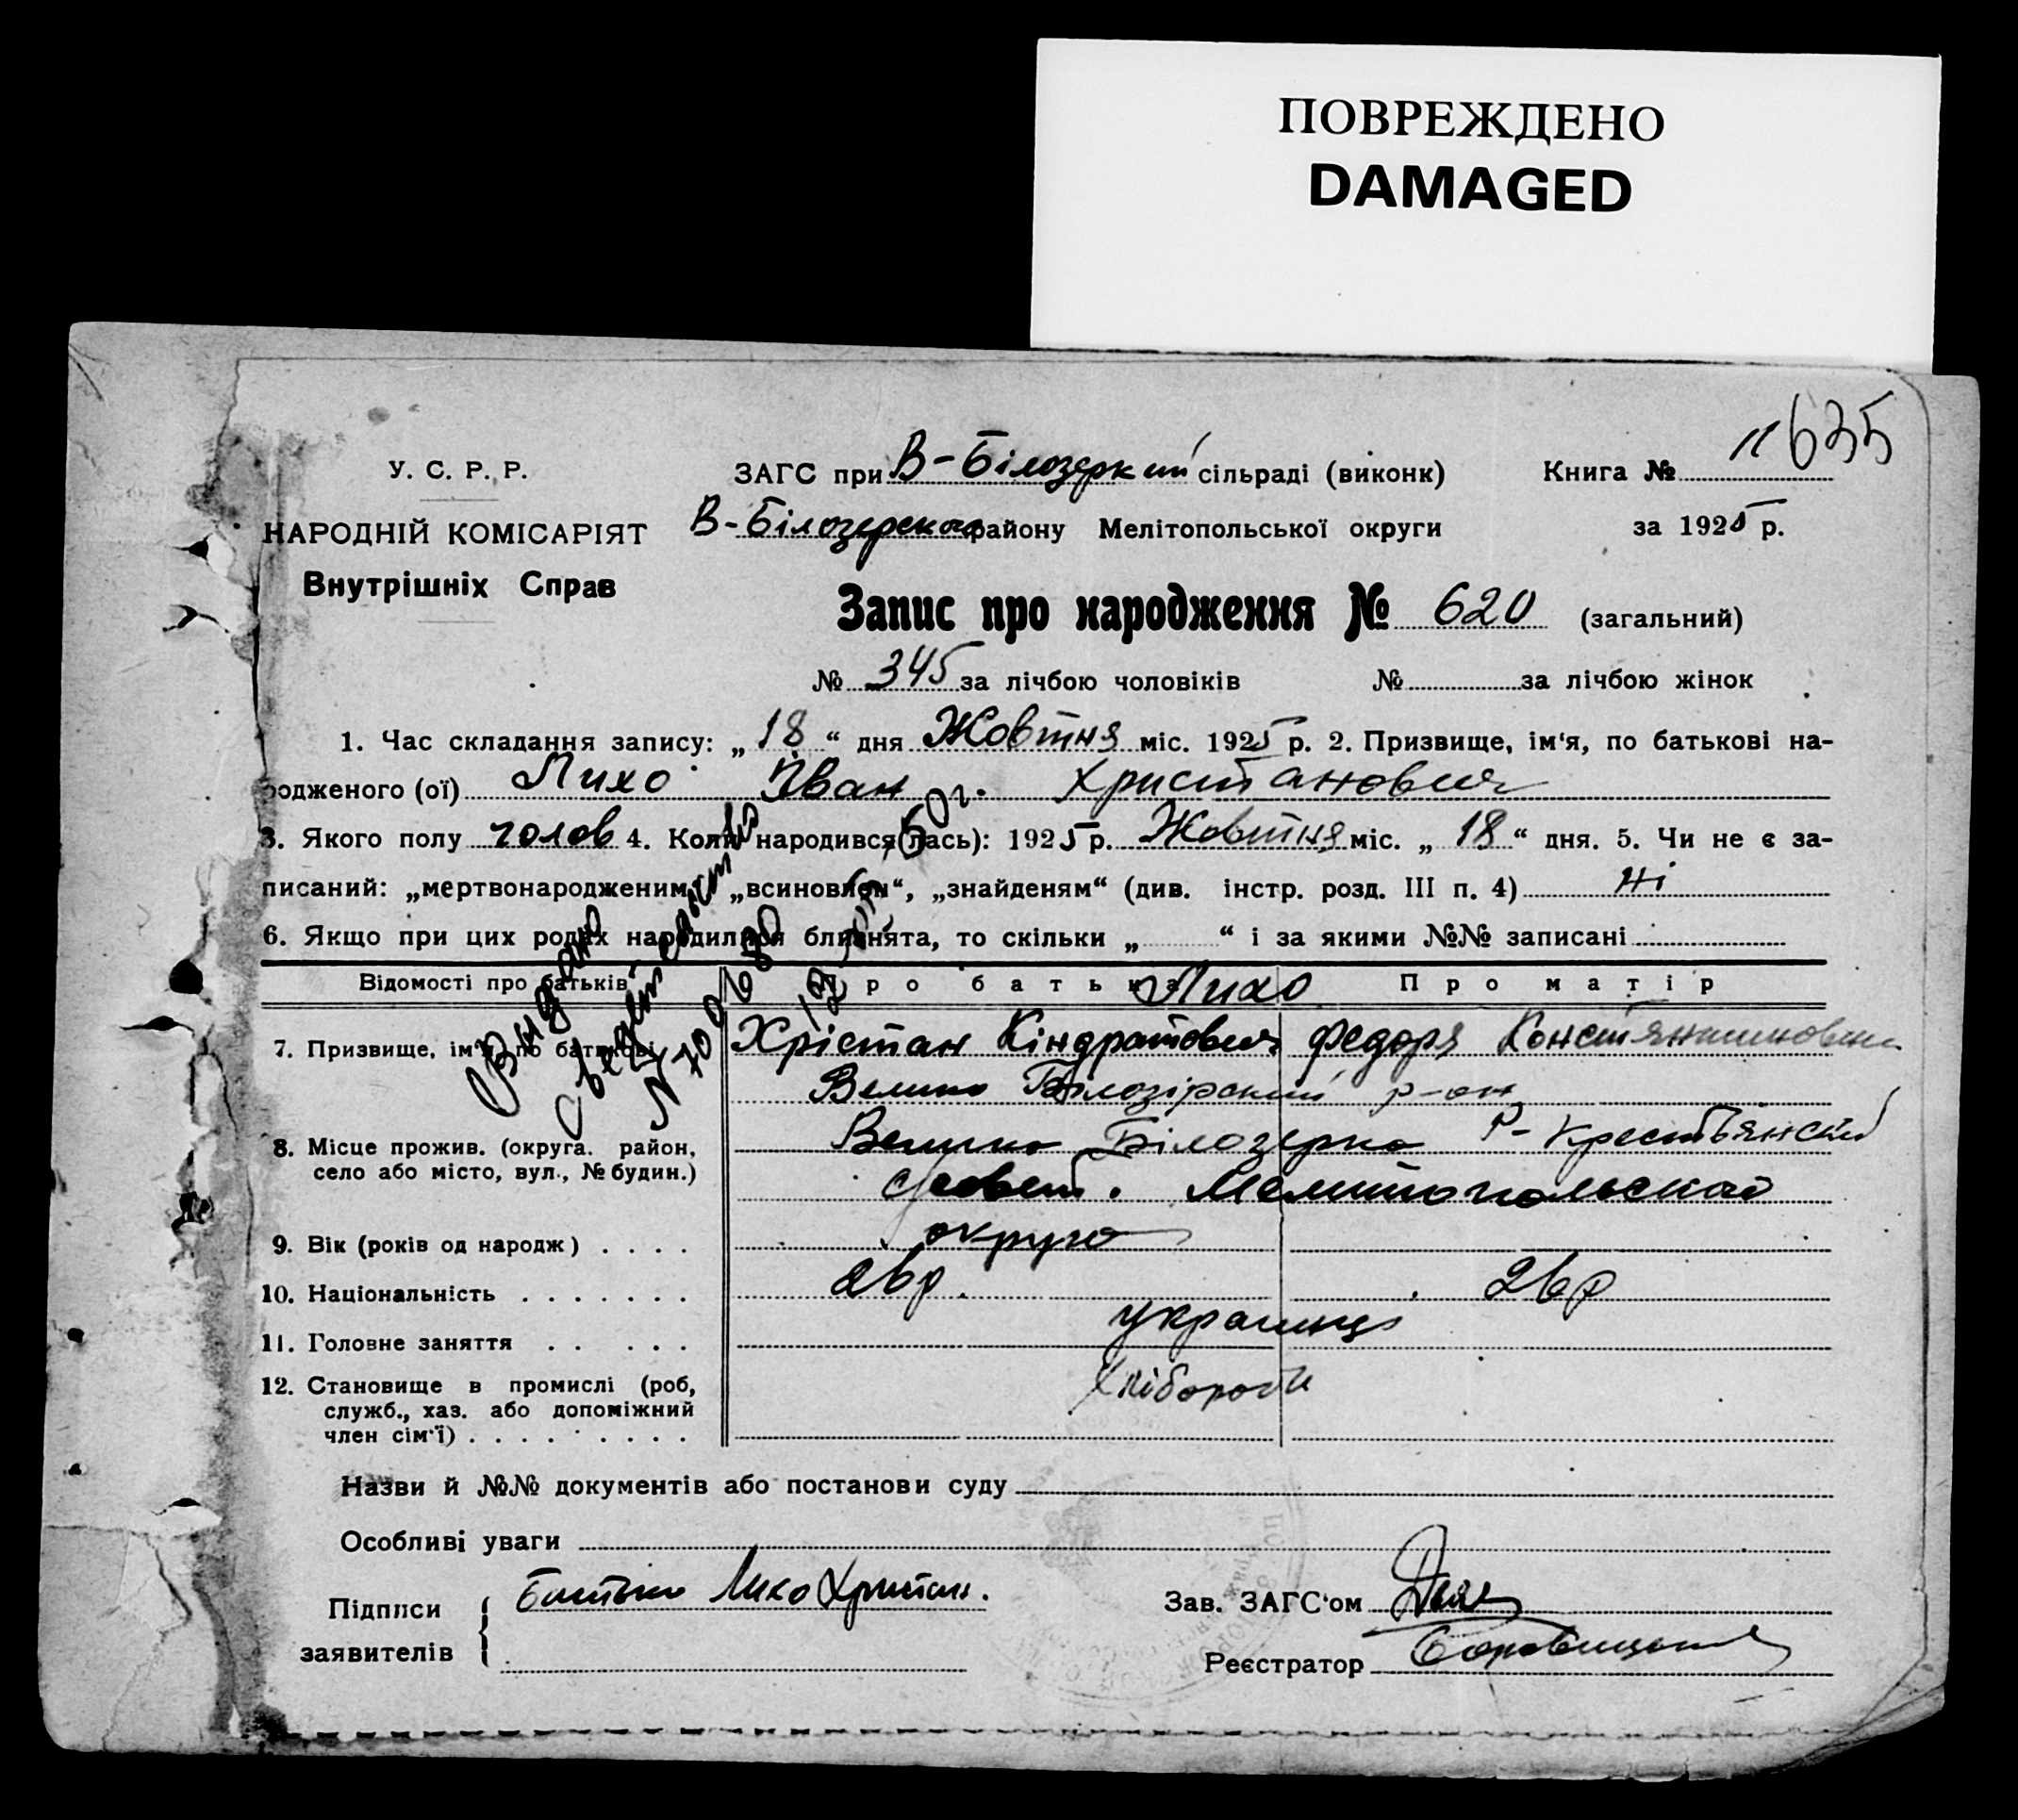 ПОВРЕЖДЕНО
DAMAGED
635
У. С. Р. Р.
НАРОДНІЙ КОМІСАРІЯТ
Внутрішніх Справ
ЗАГС при В-Білозеркий сільраді (виконк)
Книга № 11
В-Білозерского району Мелітопольської округи
за 1925 р.
Запис про народження № 620 (загальний)
№ 345 за лічбою чоловіків № за лічбою жінок
1. Час складання запису: „18“ дня Жовтня міс. 1925 р. 2. Призвище, ім'я, по батькові на-
родженого (ої) Лихо Іван Христанович
3. Якого полу чолов 4. Коли народився(лась): 1925 р. Жовтня міс. „18“ дня. 5. Чи не є за-
писаний: „мертвонародженим“, „всиновлен“, „знайденям“ (див. інстр. розд. III п. 4) ні
6. Якщо при цих родах народилися близнята, то скільки „ “ і за якими №№ записані
Відомості про батьків Про батька Лихо Про матір
7. Призвище, ім'я, по батькові Хрістан Кіндратович Федоря Констянтиновна
Велико Білозірский р-он
8. Місце прожив. (округа. район,
село або місто, вул., № будин.)
Велико Білозерка Р-Крестьянский
совет. Мелитопольской
округа
9. Вік (років од народж) . . . .
26р. 26р
10. Національність . . . . . . .
украинці
11. Головне заняття . . . . .
Хлібороби
12. Становище в промислі (роб,
служб., хаз. або допоміжний
член сім'ї) . . . . . . . . .
Видано
свидетельство
Назви й №№ документів або постанови суду
Особливі уваги
Підписи
заявителів
Батько Лихо Христан.
Зав. ЗАГС'ом
Реєстратор